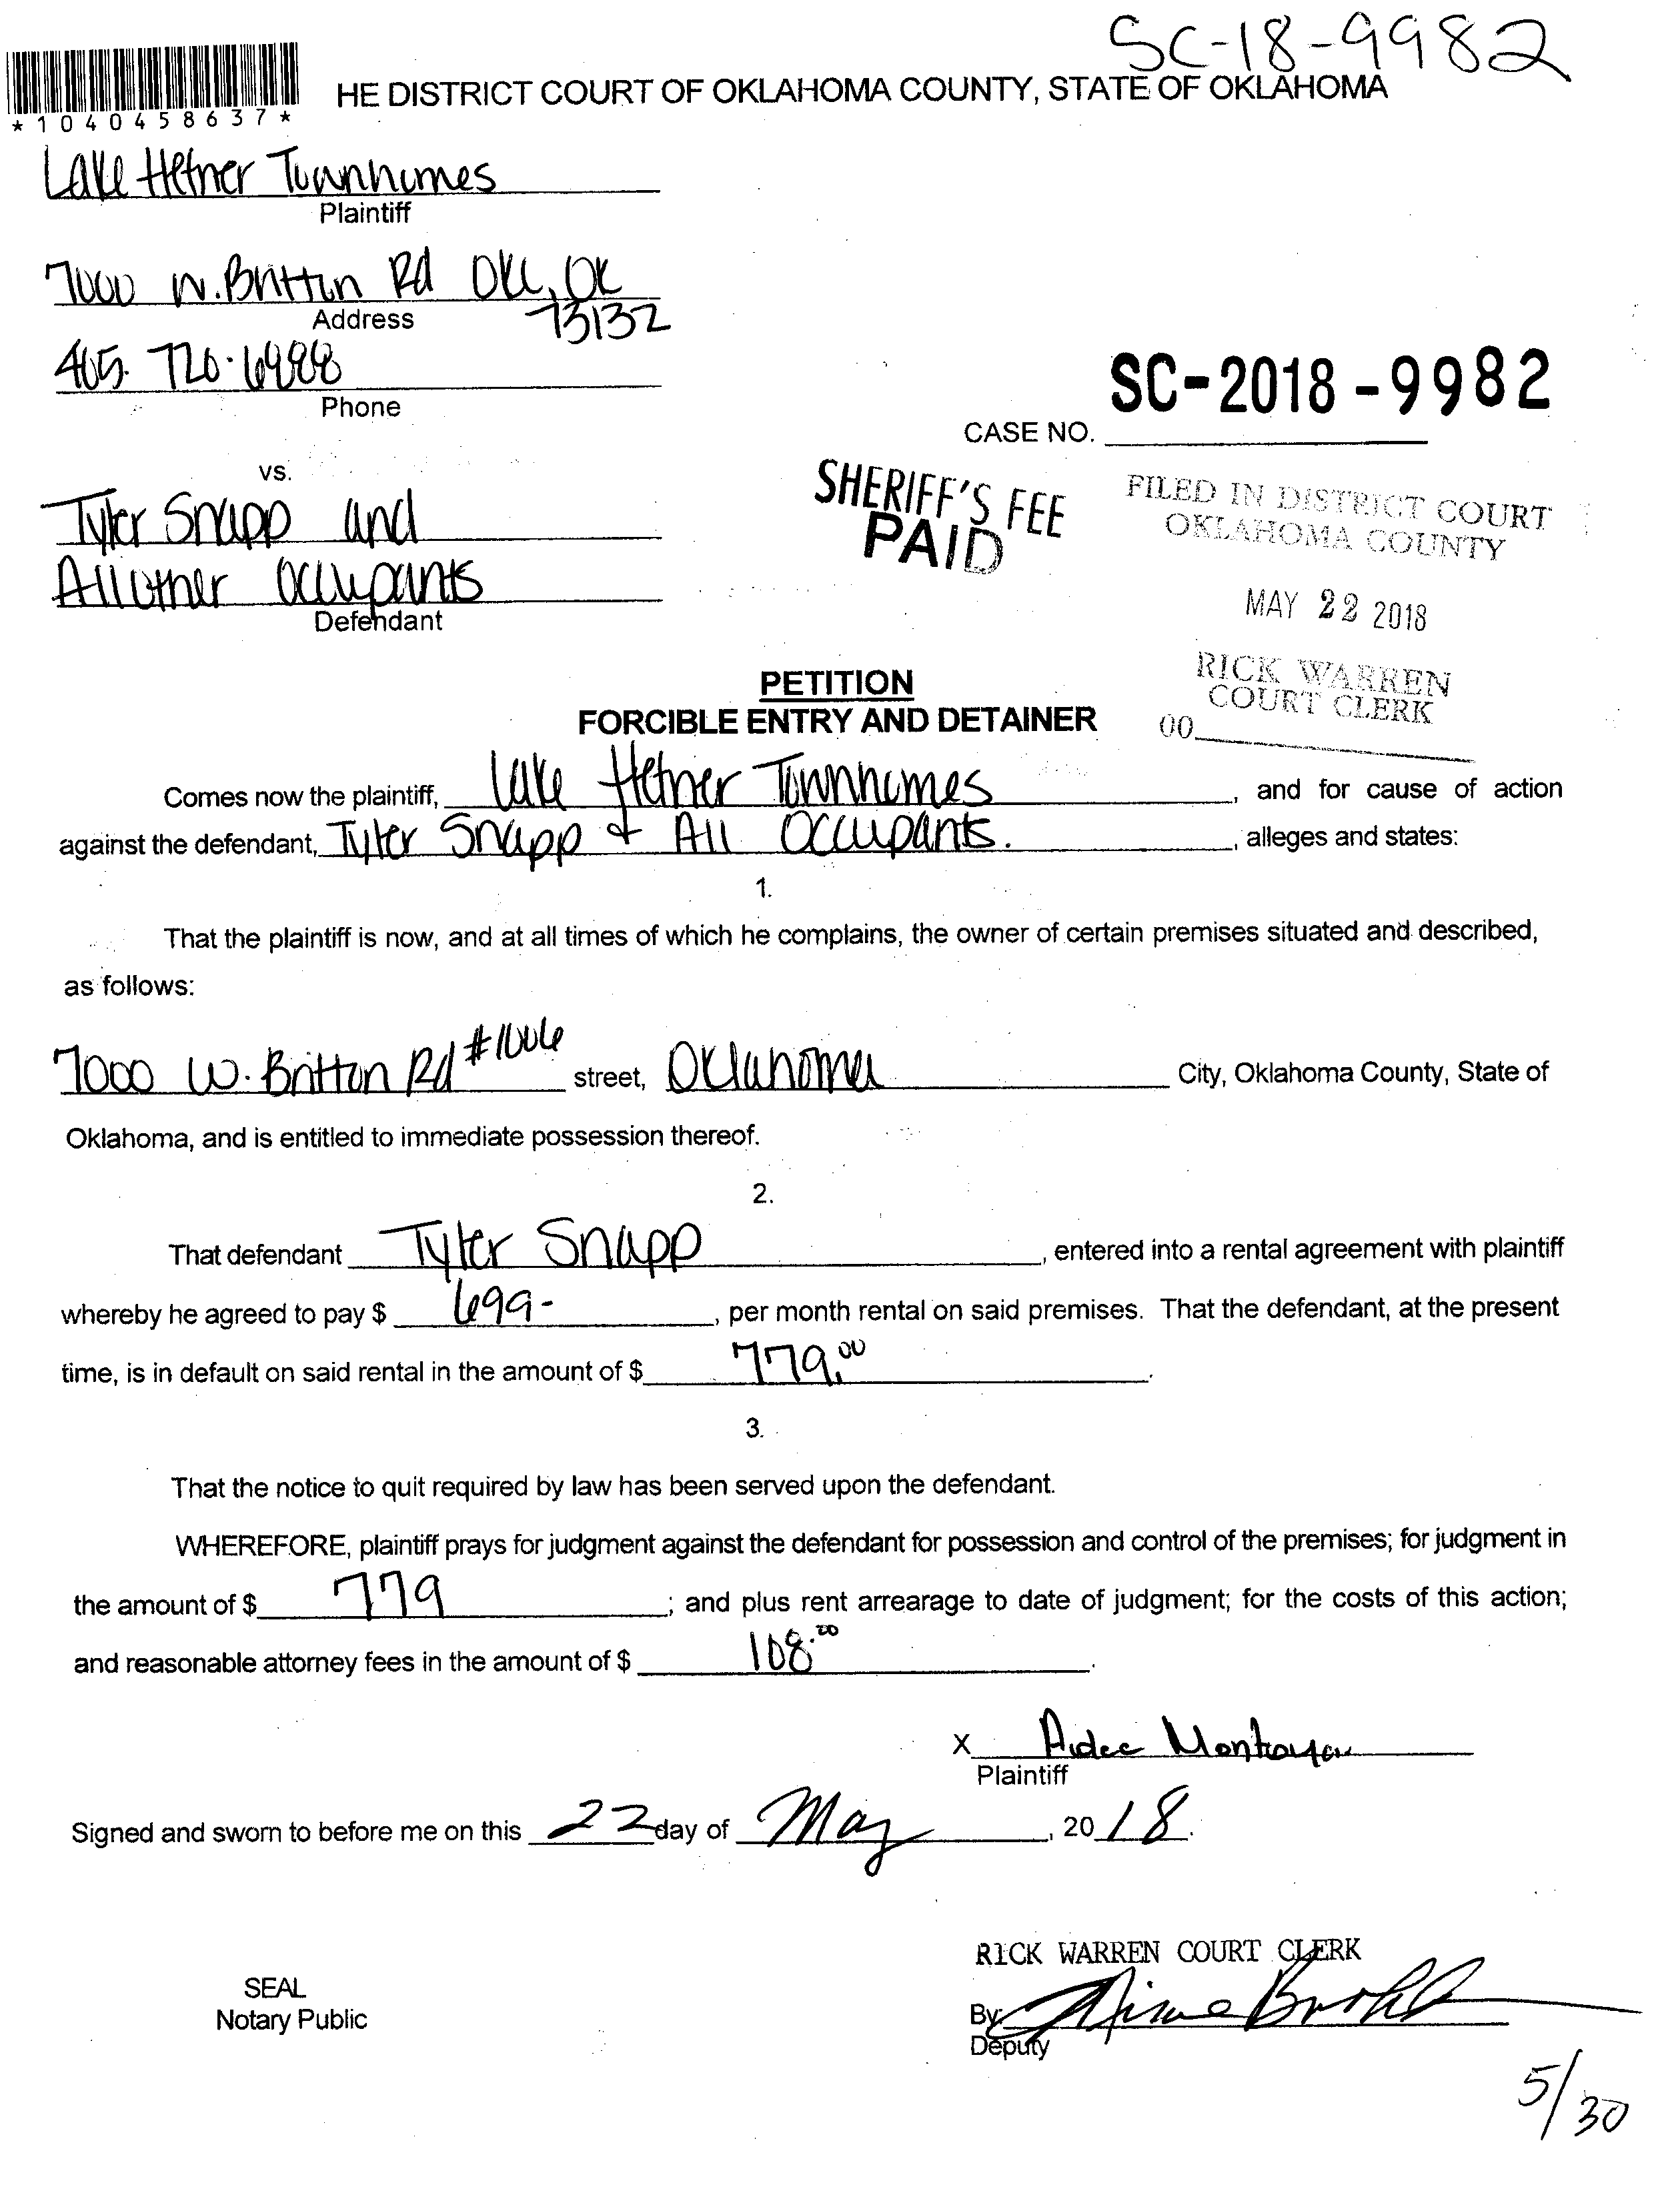 SC-18-9982
HE DISTRICT COURT OF OKLAHOMA COUNTY, STATE OF OKLAHOMA
*1040458637*
Lake Hefner Townhomes
Plaintiff
7000 W. Britton Rd OKC, OK
73132
Address
405. 720.
Phone
SC-2018-9982
CASE NO.
vs.
Tyler Snapp and
All other occupants
Defendant
SHERIFF'S FEE
PAID
FILED IN DISTRICT COURT
OKLAHOMA COUNTY
MAY 22 2018
RICK WARREN
COURT CLERK
00
PETITION
FORCIBLE ENTRY AND DETAINER
Comes now the plaintiff, Lake Hefner Townhomes, and for cause of action
against the defendant, Tyler Snapp & All Occupants., alleges and states:
1.
That the plaintiff is now, and at all times of which he complains, the owner of certain premises situated and described,
as follows:
7000 W. Britton Rd #1006 street, Oklahoma City, Oklahoma County, State of
Oklahoma, and is entitled to immediate possession thereof.
2.
That defendant Tyler Snapp, entered into a rental agreement with plaintiff
whereby he agreed to pay $ 699-, per month rental on said premises. That the defendant, at the present
time, is in default on said rental in the amount of $ 779.00.
3.
That the notice to quit required by law has been served upon the defendant.
WHEREFORE, plaintiff prays for judgment against the defendant for possession and control of the premises; for judgment in
the amount of $ 779; and plus rent arrearage to date of judgment; for the costs of this action;
and reasonable attorney fees in the amount of $ 108.00.
X Aidee Montoya
Plaintiff
Signed and sworn to before me on this 22 day of May, 2018.
RICK WARREN COURT CLERK
SEAL
Notary Public
By
Deputy
5/30